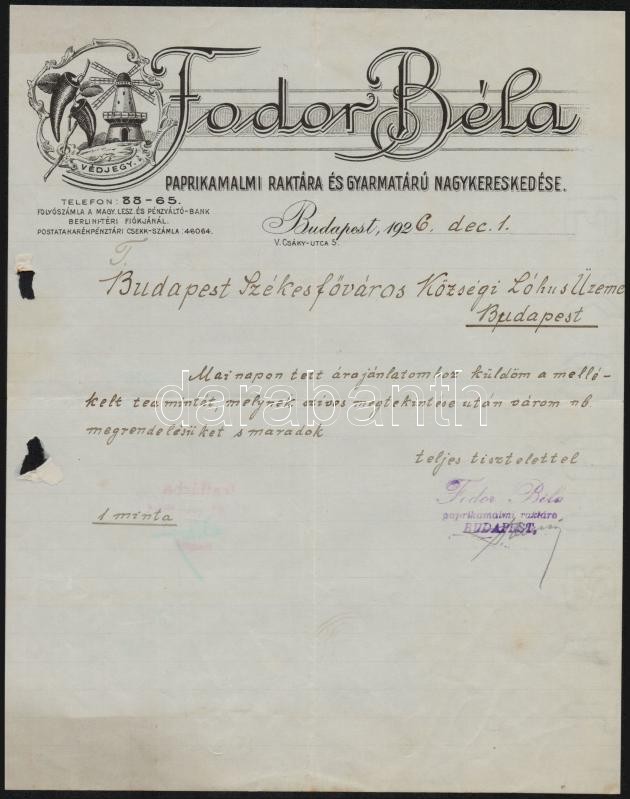 Fodor Béla
VÉDJEGY.
PAPRIKAMALMI RAKTÁRA ÉS GYARMATÁRÚ NAGYKERESKEDÉSE.
TELEFON: 88-65.
FOLYÓSZÁMLA A MAGY. LESZ. ÉS PÉNZVÁLTÓ-BANK
BERLINI-TÉRI FIÓKJÁNÁL.
POSTATAKARÉKPÉNZTÁRI CSEKK-SZÁMLA: 46064.
Budapest, 1926. dec. 1.
V. CSÁKY-UTCA 5.
T.
Budapest Székesfőváros Községi Lóhus Üzeme
Budapest
Mai napon tett árajánlatomhoz küldöm a mellé-
kelt tea mintát, melynek szives megtekintése után várom nb.
megrendelésüket s maradok
teljes tisztelettel
Fodor Béla
paprikamalmi raktára
BUDAPEST,
1 minta
darabanth